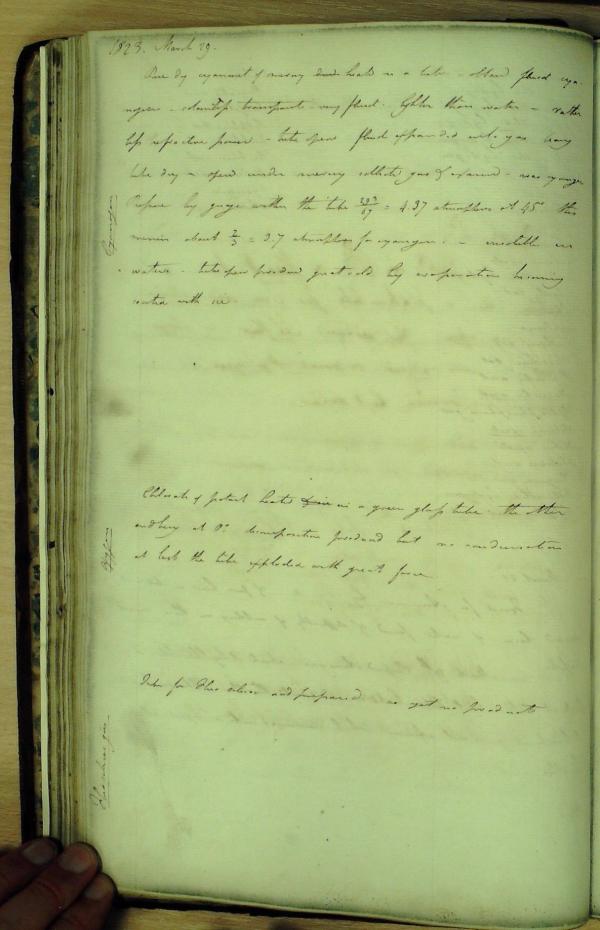 1823. March 29.
Pure dry cyanuret of mercury heated in a tube - obtained fluid cyano-
gen - colourless transparent very fluid. lighter than water - rather
less refractive power - tube open fluid expanded into gas. very
tube dry & opened under mercury collected gas & examined - was cyanogen
Pressure by guage within the tube = 4.37 atmosphere at 45° this
minus about = 3.7 atmospheres for cyanogen - insoluble in
water - tube open produced great cold by evaporation becoming
coated with ice
Cyanogen
Chlorate of potash heated in a green glass tube the other
end being at 0° decomposition produced but no condensation
at last the tube exploded with great force
Oxygen
Tube for Fluo silicic acid prepared - as yet no products
Fluo silicic gas